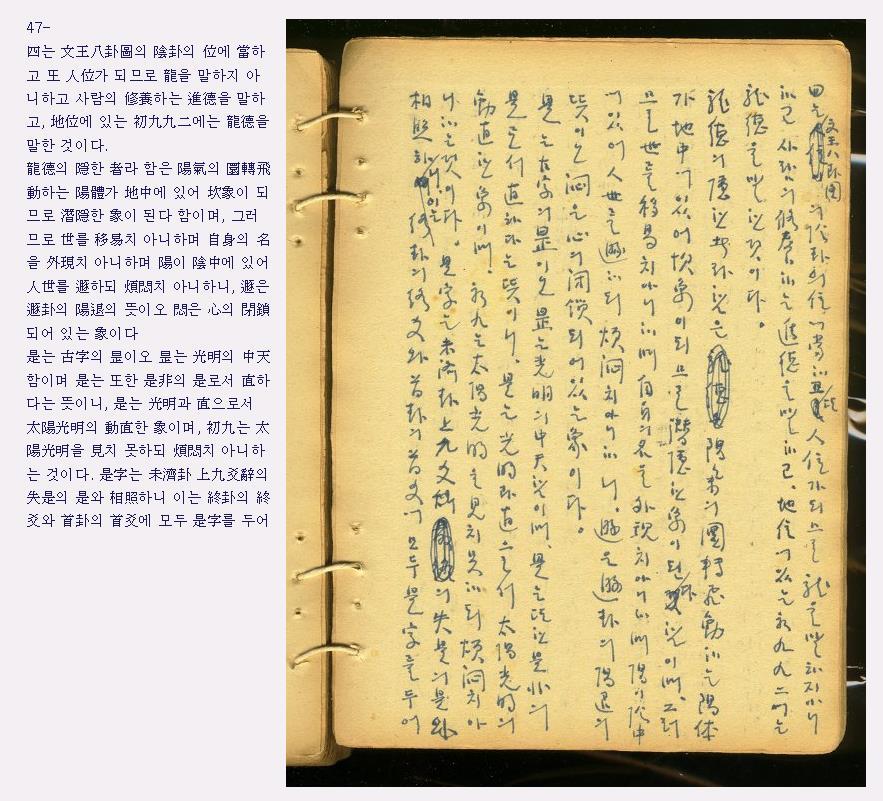 47-
四는 文王八卦圖의 陰卦의 位에 當하
고 또 人位가 되므로 龍을 말하지 아
니하고 사람의 修養하는 進德을 말하
고, 地位에 있는 初九九二에는 龍德을
말한 것이다.
龍德의 隱한 者라 함은 陽氣의 圜轉飛
動하는 陽體가 地中에 있어 坎象이 되
므로 潛隱한 象이 된다 함이며, 그러
므로 世를 移易치 아니하며 自身의 名
을 外現치 아니하며 陽이 陰中에 있어
人世를 遯하되 煩悶치 아니하니, 遯은
遯卦의 陽退의 뜻이오 悶은 心의 閉鎖
되어 있는 象이다
是는 古字의 昰이오 昰는 光明의 中天
함이며 是는 또한 是非의 是로서 直하
다는 뜻이니, 是는 光明과 直으로서
太陽光明의 動直한 象이며, 初九는 太
陽光明을 見치 못하되 煩悶치 아니하
는 것이다. 是字는 未濟卦 上九爻辭의
失是의 是와 相照하니 이는 終卦의 終
爻와 首卦의 首爻에 모두 是字를 두어
四는 文王八卦圖의 陰卦의 位에 當하고 또 人位가 되므로 龍을 말하지 아니
하고 사람의 修養하는 進德을 말하고, 地位에 있는 初九九二에는
龍德을 말한 것이다.
龍德의 隱한 者라 함은 陽氣의 圜轉飛動하는 陽体
가 地中에 있어 坎象이 되므로 潛隱한 象이 된다 함이며, 그러
므로 世를 移易치 아니하며 自身의 名을 外現치 아니하며 陽이 陰中
에 있어 人世를 遯하되 煩悶치 아니하니, 遯은 遯卦의 陽退의
뜻이오 悶은 心의 閉鎖되어 있는 象이다.
是는 古字의 昰이오 昰는 光明의 中天함이며, 是는 또한 是非의
是로서 直하다는 뜻이니, 是는 光明과 直으로서 太陽光明의
動直한 象이며, 初九는 太陽光明을 見치 못하되 煩悶치 아
니하는 것이다. 是字는 未濟卦 上九爻辭의 失是의 是와
相照하니 이는 終卦의 終爻와 首卦의 首爻에 모두 是字를 두어